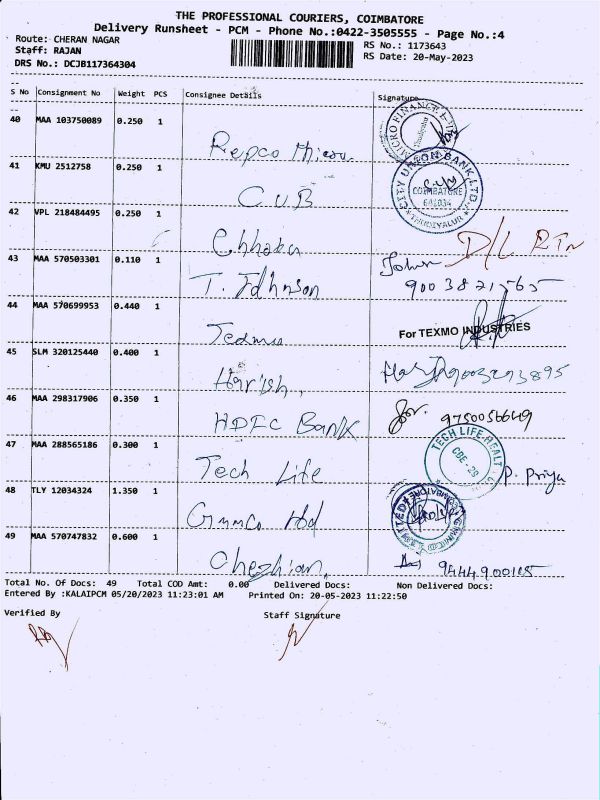 THE PROFESSIONAL COURIERS, COIMBATORE
Delivery Runsheet - PCM - Phone No.:0422-3505555 - Page No.:4
Route: CHERAN NAGAR
RS No.: 1173643
Staff: RAJAN
RS Date: 20-May-2023
DRS No.: DCJB117364304
S No Consignment No Weight PCS Consignee Details Signature
40 MAA 103750089 0.250 1
MICRO FINANCE
Repco Micro
41 KMU 2512758 0.250 1
CITY UNION BANK LTD.
COIMBATORE
641034
THUDIYALUR
CUB
42 VPL 218484495 0.250 1
D/L RTn
43 MAA 570503301 0.110 1
John
T. Johnson
44 MAA 570699953 0.440 1
For TEXMO INDUSTRIES
45 SLM 320125440 0.400 1
Harish.
46 MAA 298317906 0.350 1
HDFC Bank
9750056649
47 MAA 288565186 0.300 1
TECH LIFE HEALT
CBE - 29
Tech Life
P. Priya
48 TLY 12034324 1.350 1
49 MAA 570747832 0.600 1
Chezhian.
Total No. Of Docs: 49 Total COD Amt: 0.00 Delivered Docs: Non Delivered Docs:
Entered By :KALAIPCM 05/20/2023 11:23:01 AM Printed On: 20-05-2023 11:22:50
Verified By Staff Signature